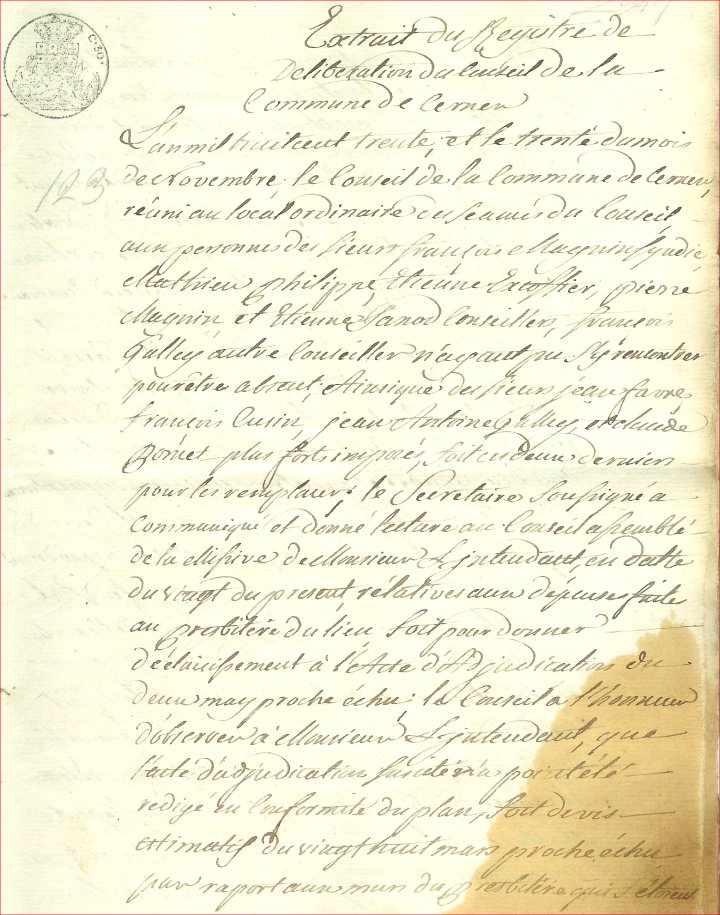 C. 30.
Extrait du Registre de
Deliberation du Conseil de la
Commune de Cernex
123
L'an mil huit cent trente, et le trente du mois
de Novembre le Conseil de la Commune de Cernex,
réuni au local ordinaire des séances du Conseil
aux personnes des sieurs françois Magnin Syndic
Mathieu philippe, Etienne Excoffier, pierre
Magnin, et Etienne Conseillers, françois
Galley autre Conseiller n'ayant pu s'y rencontrer
pour être absent, Ainsi que des sieurs jean favre
françois Cusin, jean Antoine Galley, et claude
plus forts imposés, soit ces deux derniers
pour les remplacer; le Secrétaire Soussigné a
Communiqué et donné lecture au Conseil assemblé
de la Missive de Monsieur L'jntendant, en datte
du vingt du present rélatives aux dépense faite
au presbitère du lieu soit pour donner
d'éclaircissement à l'Acte d'Adjudication du
deux may proche échu: le Conseil a l'honneur
d'observer à Monsieur L'jntendant, que
l'acte d'adjudication suscité n'a point été
redigé en Conformité du plan, soit devis
estimatif du vingt huit mars proche échu
par raport aux murs du presbitère qui